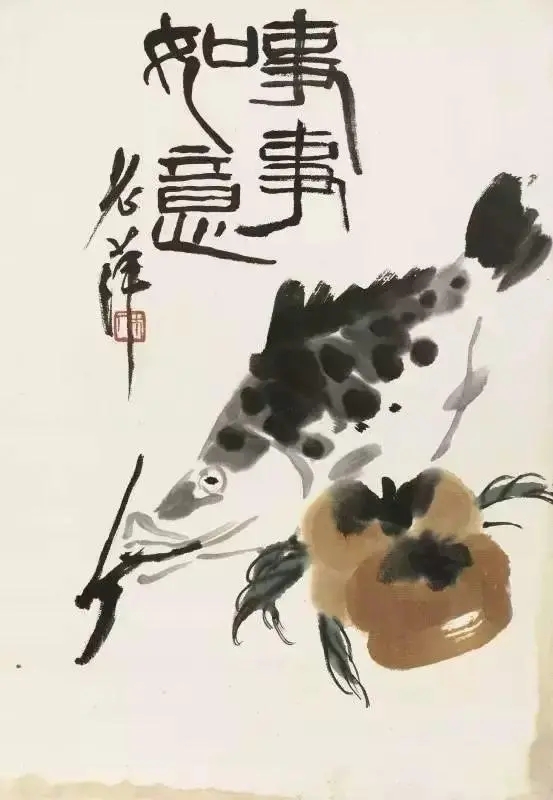 事事
如意
老萍